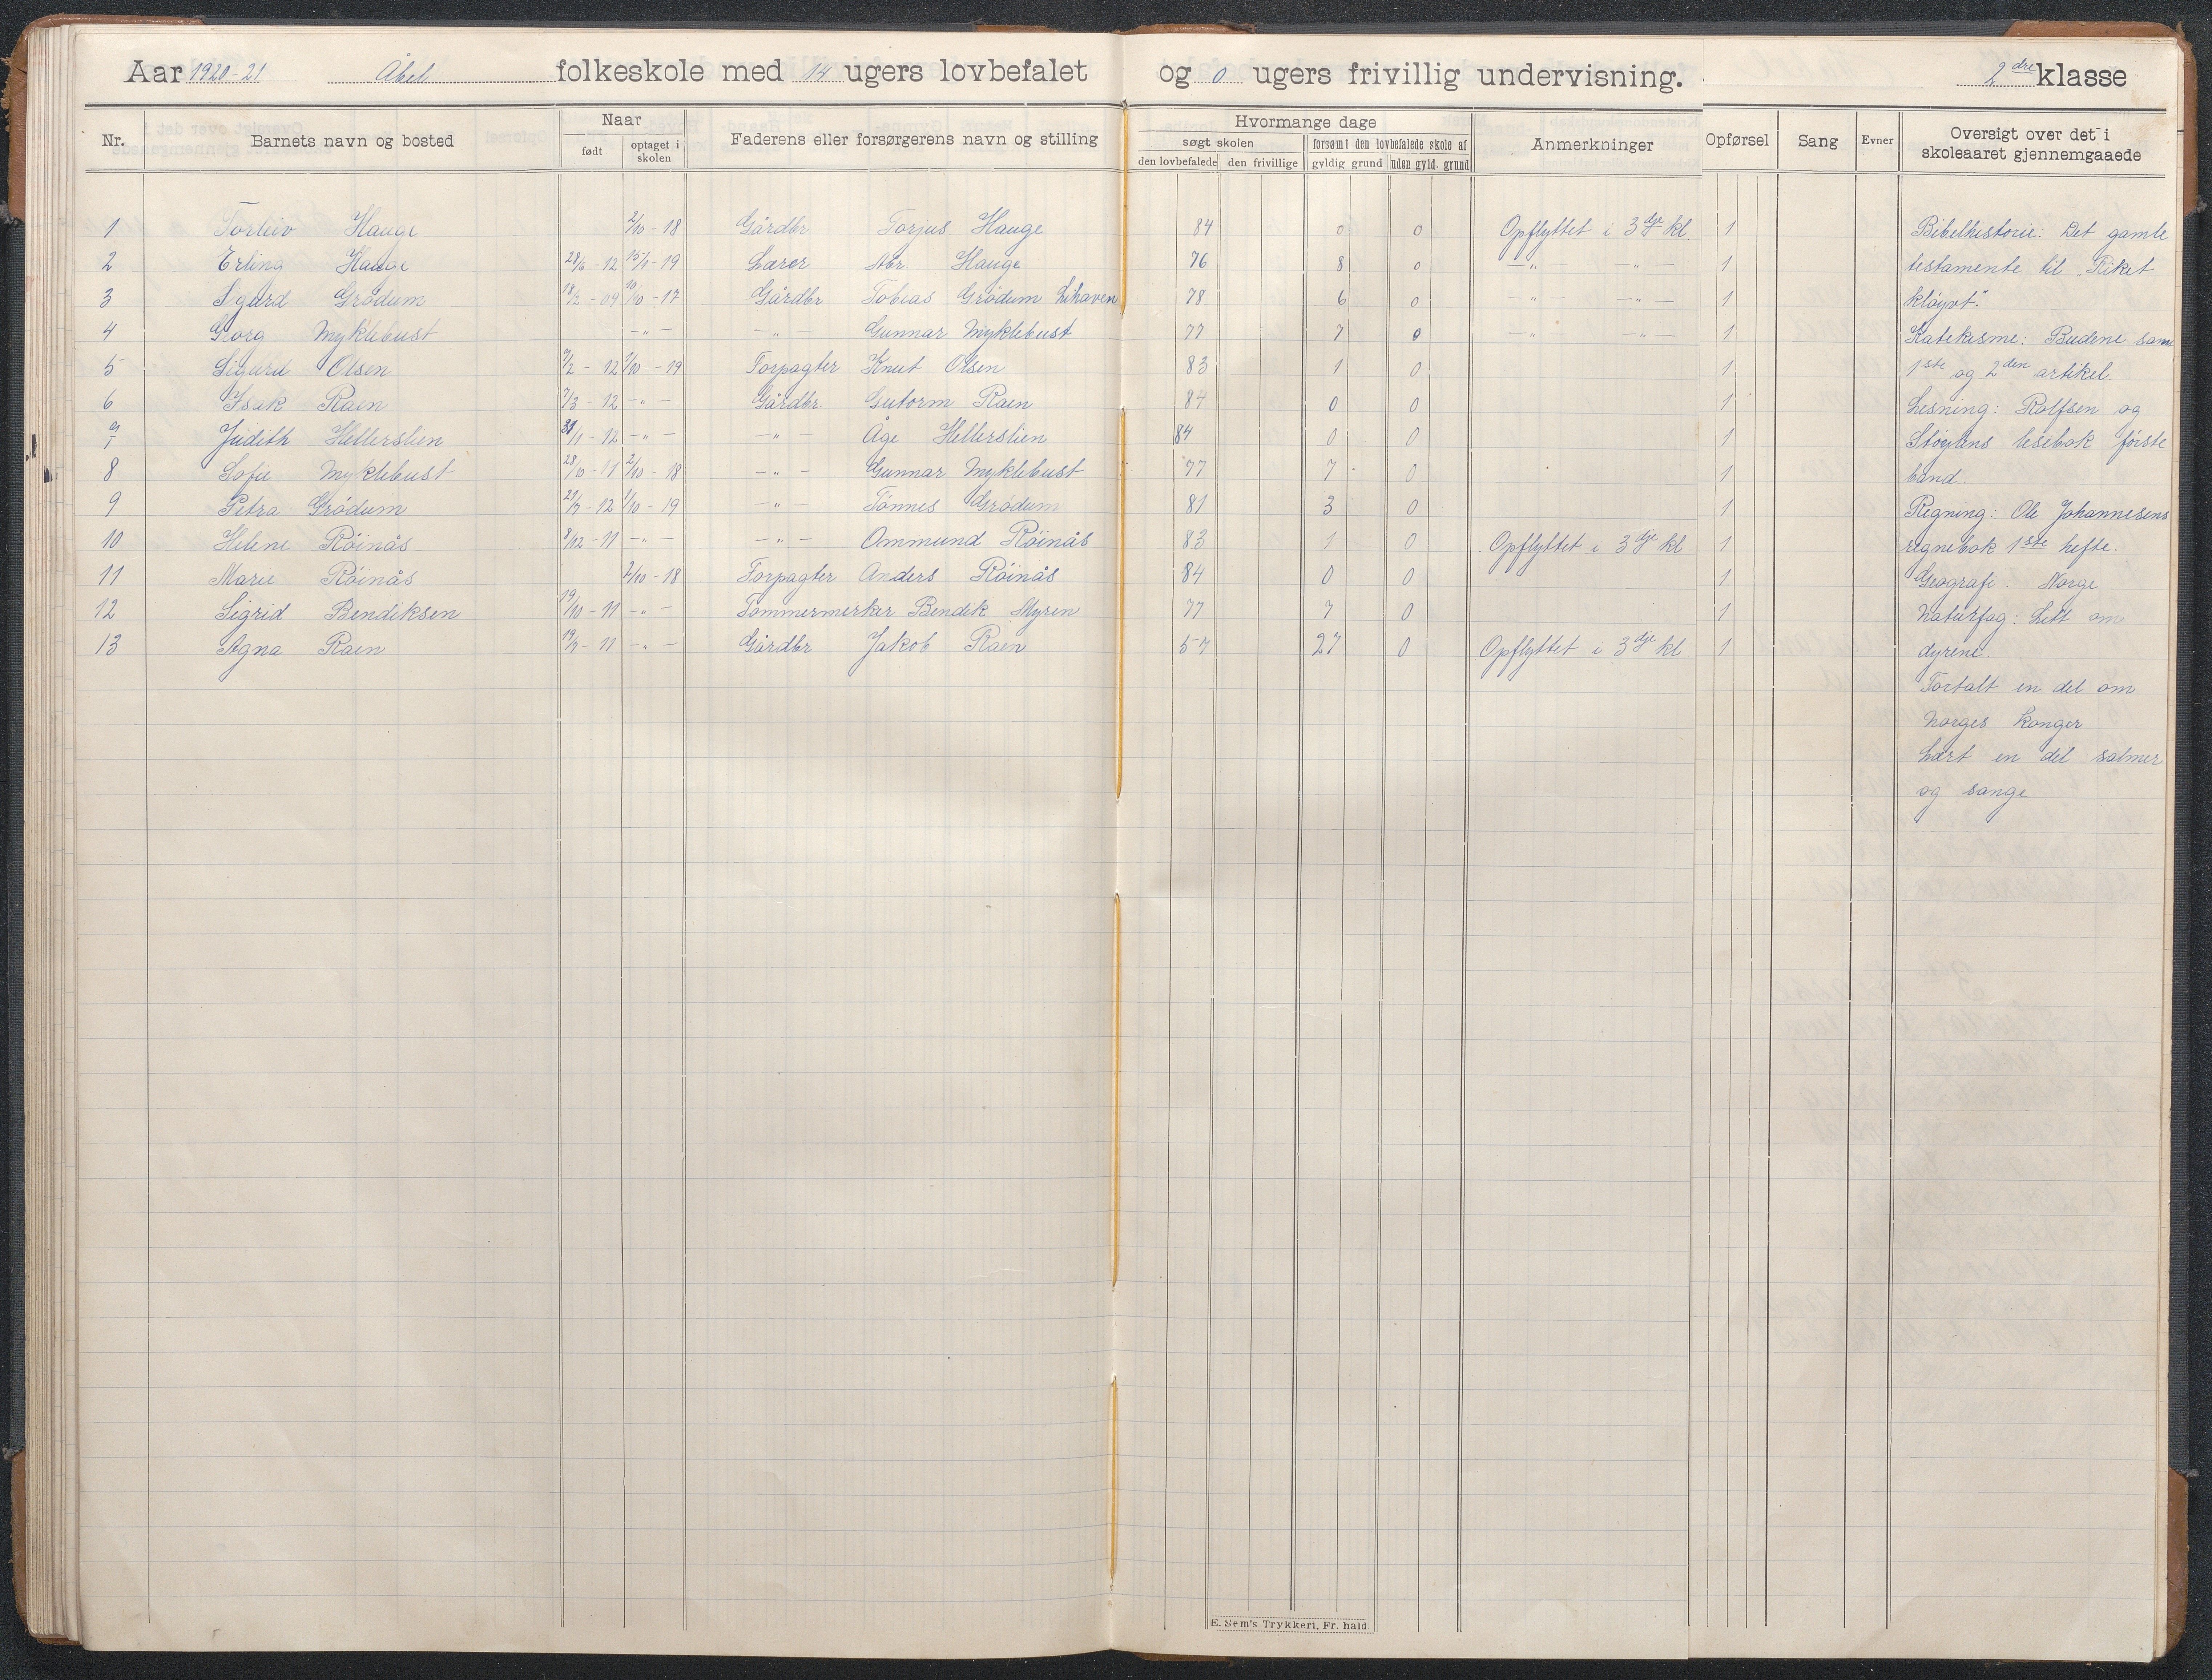 Aar 1920-21 Åbel folkeskole med 14 ugers lovbefalet og 0 ugers frivillig undervisning. 2dre klasse
Nr. Barnets navn og bosted Naar født optaget i skolen Faderens eller forsørgerens navn og stilling Hvormange dage søgt skolen den lovbefalede den frivillige forsømt den lovbefalede skole af gyldig grund uden gyld. grund Anmerkninger Opførsel Sang Evner Oversigt over det i skoleaaret gjennemgaaede
1 Torleiv Hauge 2/10 - 18 Gårdbr Torjus Hauge 84 0 0 Opflyttet i 3dje kl 1 Bibelhistorie: Det gamle
2 Erling Hauge 28/6 - 12 15/1 - 19 Lærer Abr Hauge 76 8 0 —„— —„— 1 testamente til „Riket
3 Sigurd Grødum 18/2 - 09 10/10 - 17 Gårdbr Tobias Grødum Lihaven 78 6 0 —„— —„— 1 kløyvt".
4 Georg Myklebust —„— —„— Gunnar Myklebust 77 7 0 —„— —„— 1 Katekisme: Budene samt
5 Sigurd Olsen 7/2 - 12 1/10 - 19 Forpagter Knut Olsen 83 1 0 1 1ste og 2den artikel.
6 Isak Raen 7/3 - 12 —„— Gårdbr Gutorm Raen 84 0 0 1 Lesning: Rolfsen og
7 Judith Hellerslien 31/1 - 12 —„— —„— Åge Hellerslien 84 0 0 1 Støylens lesebok første
8 Sofie Myklebust 28/10 - 11 2/10 - 18 —„— Gunnar Myklebust 77 7 0 1 band.
9 Petra Grødum 29/3 - 12 1/10 - 19 —„— Tønnes Grødum 81 3 0 1 Regning: Ole Johannesens
10 Helene Röinås 8/12 - 11 —„— —„— Ommund Röinås 83 1 0 Opflyttet i 3dje kl 1 regnebok 1ste hefte.
11 Marie Röinås 2/10 - 18 Forpagter Anders Röinås 84 0 0 1 Geografi: Norge
12 Sigrid Bendiksen 19/10 - 11 —„— Tømmermerker Bendik Myren 77 7 0 1 Naturfag: Litt om
13 Agna Raen 19/7 - 11 —„— Gårdbr Jakob Raen 57 27 0 Opflyttet i 3dje kl 1 dyrene.
Fortalt en del om
Norges konger
Lært en del salmer
og sange
E. Sem's Trykkeri, Fr. hald.